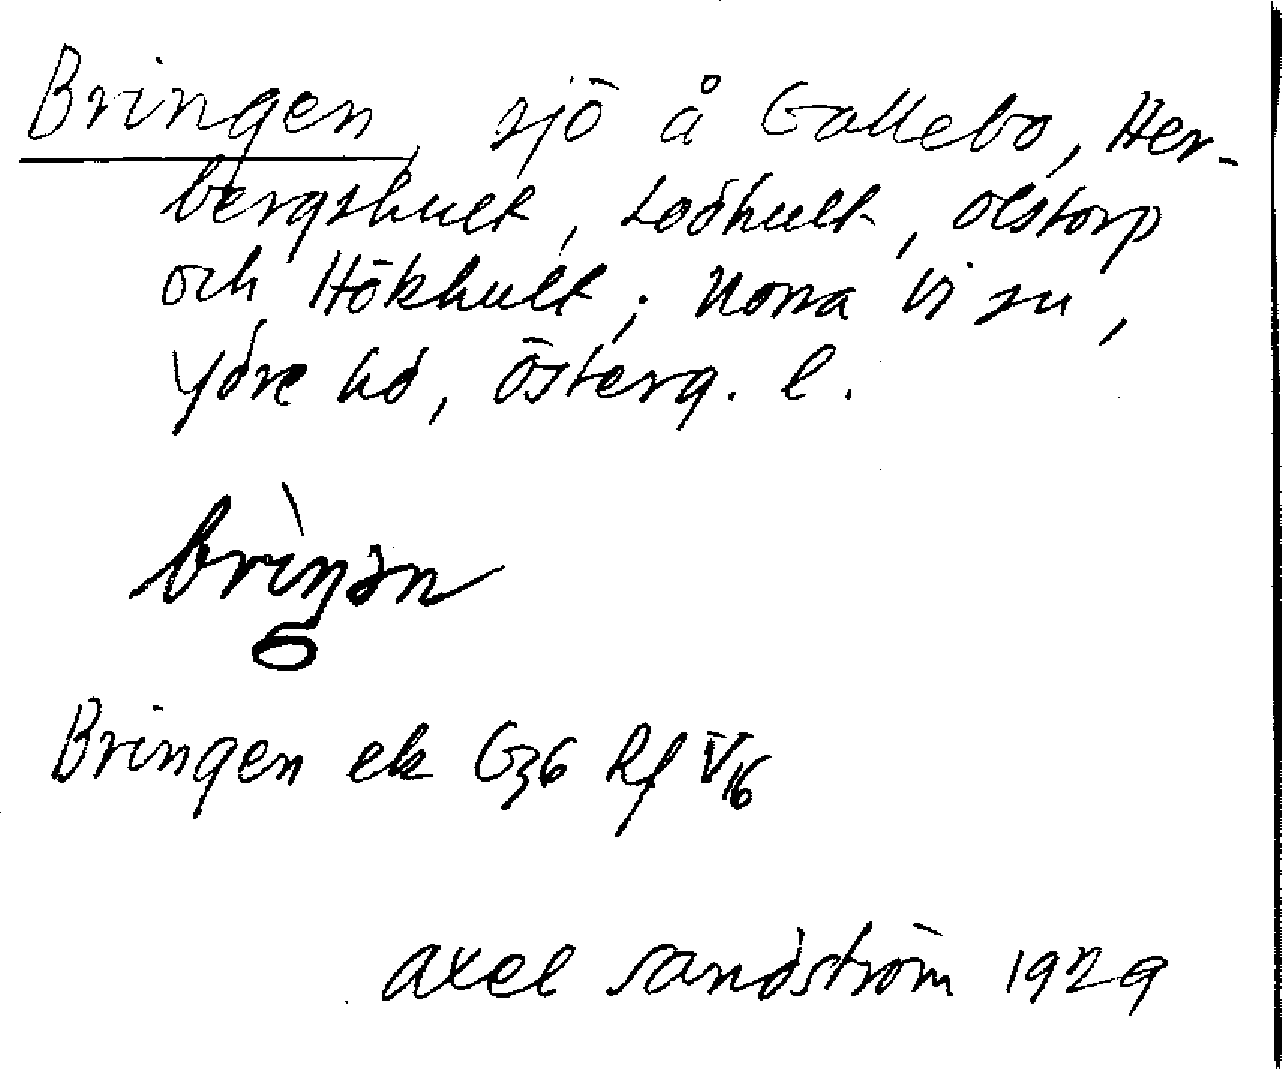 Bringen, sjö å Gallebo, Her-
bergshult, Lodhult, Olstorp
och Hökhult; Norra Vi sn,
Ydre hd, Österg. l.
brìŋən
Bringen ek G36 Rf V 16
Axel Sandström 1929